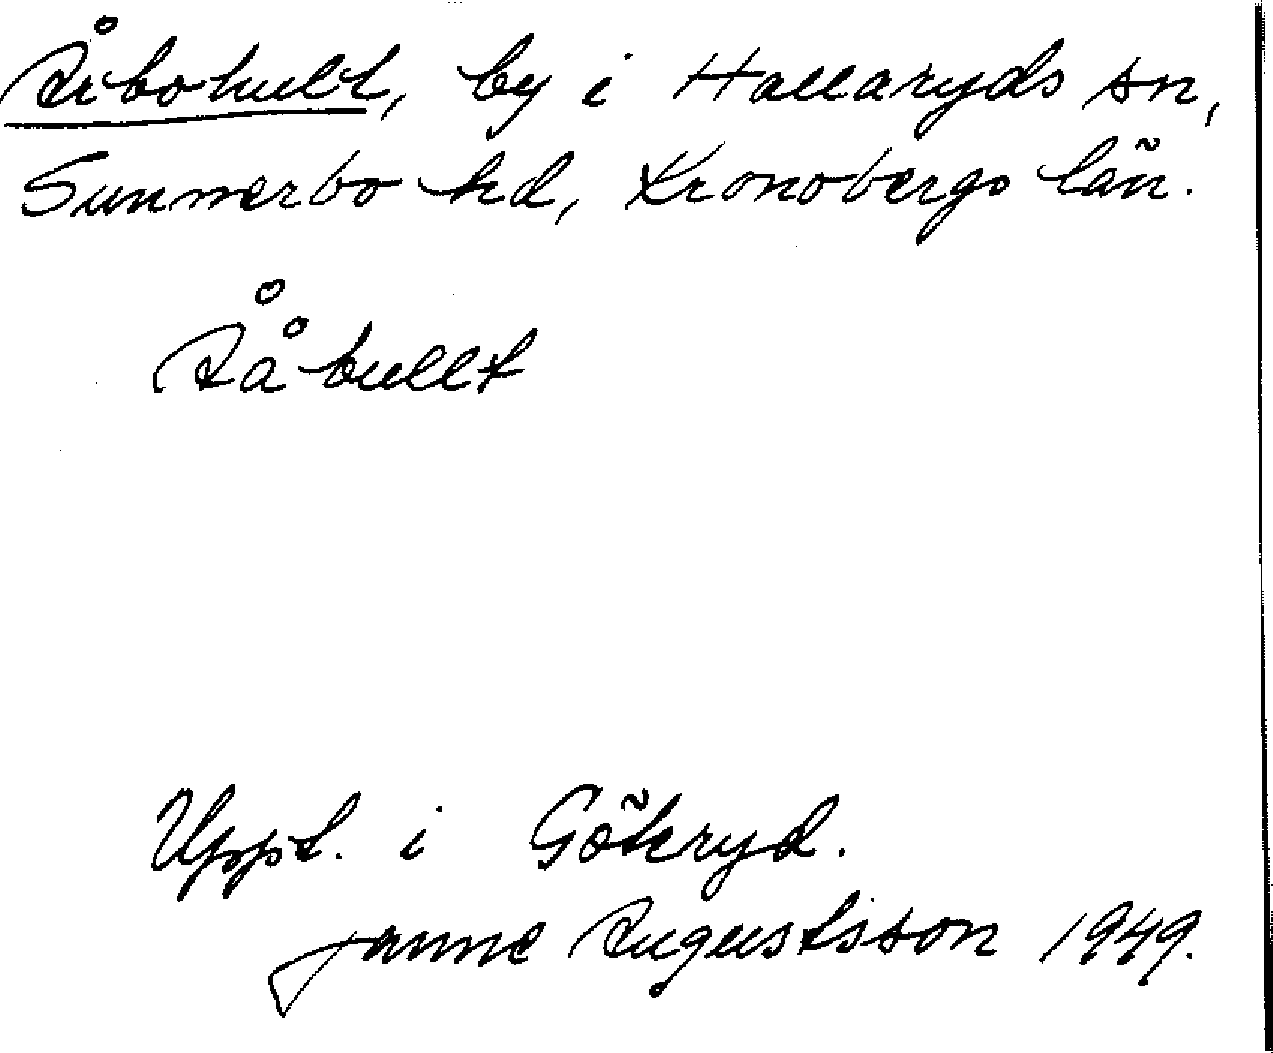 Åbohult, by i Hallaryds sn,
Sunnerbo hd, Kronobergs län.
Ååbullt
Uppt. i Göteryd.
Janne Augustsson 1949.